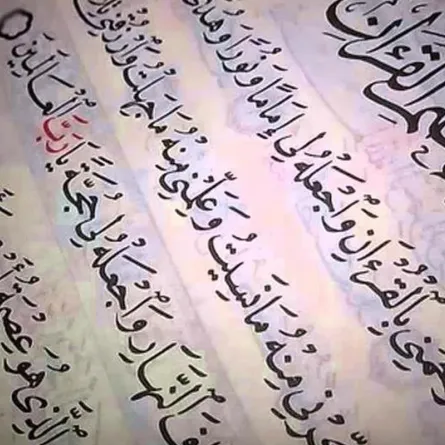 الْقُرْءَانِ
بِالْقُرْءَانِ وَاجْعَلْهُ لِي إِمَامًا وَنُورًا وَهُدًى
مِنْهُ مَا نَسِيتُ وَعَلِّمْنِي مِنْهُ مَا جَهِلْتُ وَارْزُقْنِي
النَّهَارِ وَاجْعَلْهُ لِي حُجَّةً يَا رَبَّ الْعَالَمِينَ
الَّذِي هُوَ عِصْمَةُ